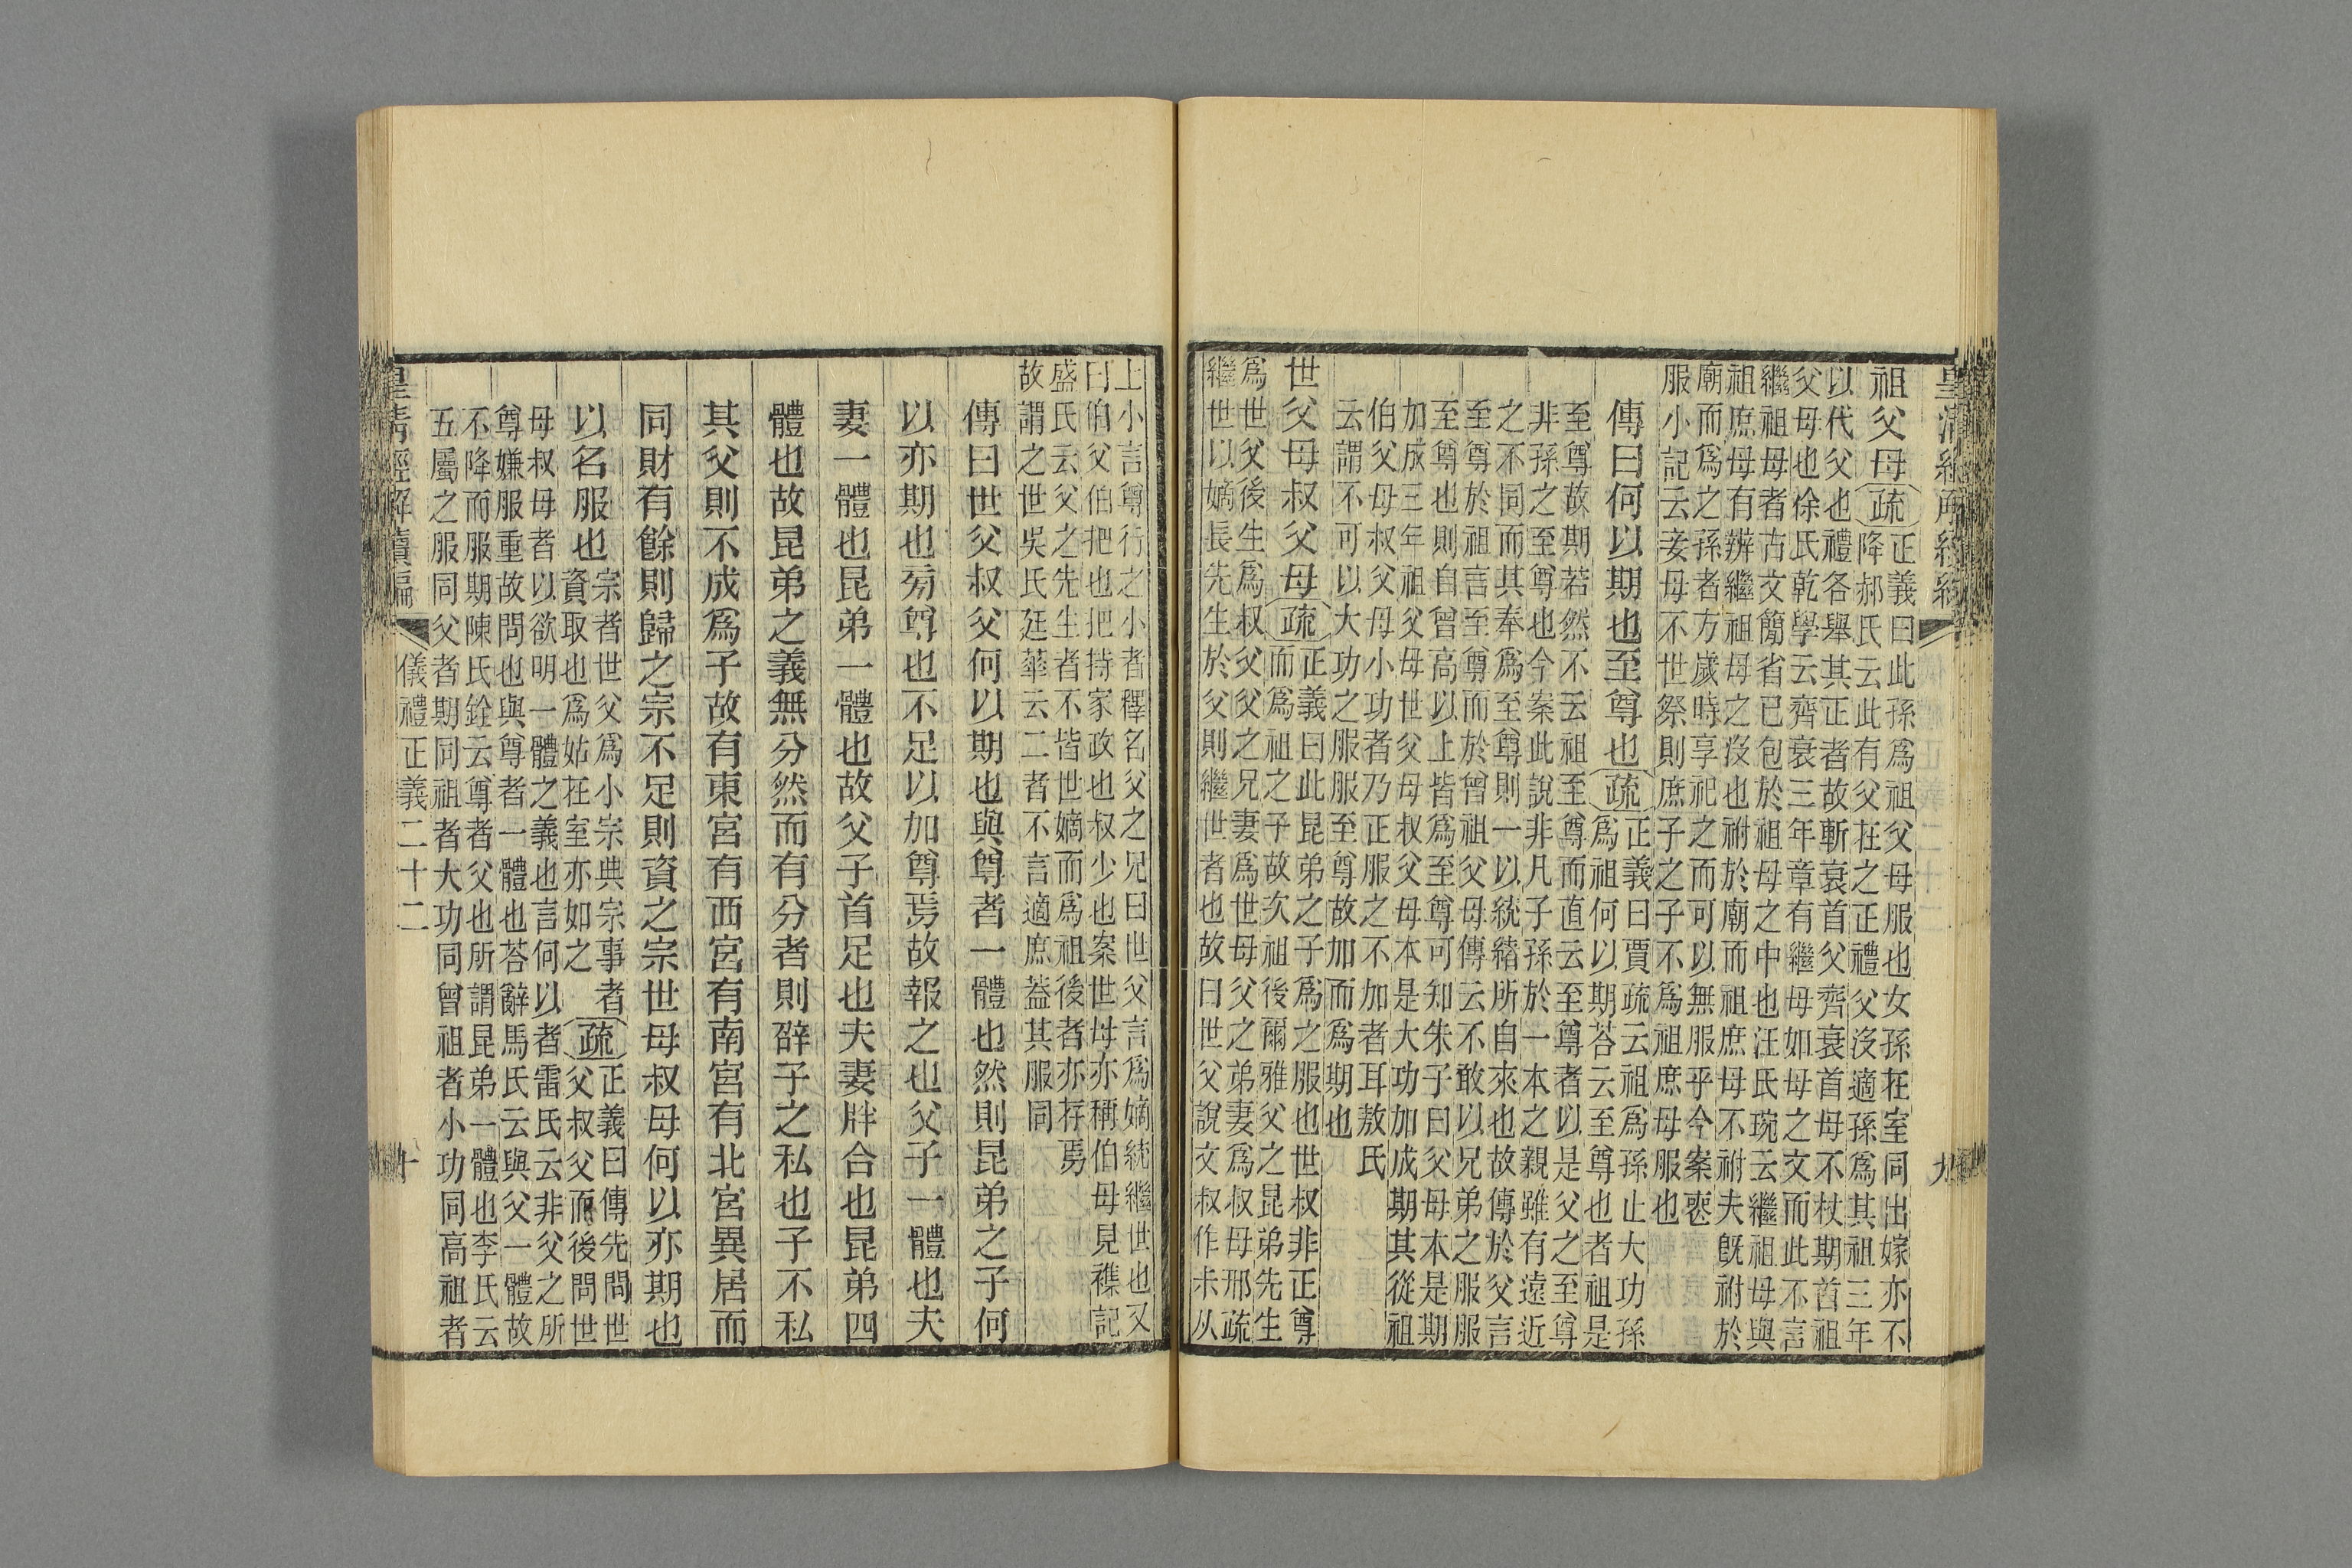 祖父母疏正義曰此孫爲祖父母服也女孫在室同出嫁亦不
降郝氏云此有父在之正禮父沒適孫爲其祖三年
以代父也禮各舉其正者故斬衰首父齊衰首母不杖期首祖
父母也徐氏乾學云齊衰三年章有繼母如母之文而此不言
繼祖母者古文簡省已包於祖母之中也汪氏琬云繼祖母與
祖庶母有辨繼祖母之沒也祔於廟而祖庶母不祔夫旣祔於
廟而爲之孫者方歲時享祀之而可以無服乎今案
服小記云妾母不世祭則庶子之子不爲祖庶母服也
傳曰何以期也至尊也疏正義曰賈疏云祖爲孫止大功孫
爲祖何以期荅云至尊也者祖是
至尊故期若然不云祖至尊而直云至尊者以是父之至尊
非孫之至尊也今案此說非凡子孫於一本之親雖有遠近
之不同而其奉爲至尊則一以統緒所自來也故傳於父言
至尊於祖言至尊而於曾祖父母傳云不敢以兄弟之服服
至尊也則自曾高以上皆爲至尊可知朱子曰父母本是期
加成三年祖父母世父母叔父母本是大功加成期其從祖
伯父母叔父母小功者乃正服之不加者耳敖氏
云謂不可以大功之服服至尊故加而爲期也
世父母叔父母疏正義曰此昆弟之子爲之服也世叔非正尊
而爲祖之子故次祖後爾雅父之昆弟先生
爲世父後生爲叔父父之兄妻爲世母父之弟妻爲叔母邢疏
繼世以嫡長先生於父則繼世者也故曰世父說文叔作尗从
上小言尊行之小者釋名父之兄曰世父言爲嫡統繼世也又
曰伯父伯把也把持家政也叔少也案世母亦稱伯母見襍記
盛氏云父之先生者不皆世嫡而爲祖後者亦存焉
故謂之世吳氏廷華云二者不言適庶葢其服同
傳曰世父叔父何以期也與尊者一體也然則昆弟之子何
以亦期也旁尊也不足以加尊焉故報之也父子一體也夫
妻一體也昆弟一體也故父子首足也夫妻牉合也昆弟四
體也故昆弟之義無分然而有分者則辟子之私也子不私
其父則不成爲子故有東宮有西宮有南宮有北宮異居而
同財有餘則歸之宗不足則資之宗世母叔母何以亦期也
以名服也宗者世父爲小宗典宗事者
資取也爲姑在室亦如之疏正義曰傳先問世
父叔父而後問世
母叔母者以欲明一體之義也言何以者雷氏云非父之所
尊嫌服重故問也與尊者一體也荅辭馬氏云與父一體故
不降而服期陳氏銓云尊者父也所謂昆弟一體也李氏云
五屬之服同父者期同祖者大功同曾祖者小功同高祖者
儀禮正義二十二
十